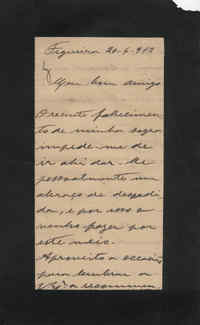 Figueira 20-9-912
Meu bom amigo
O recente fallecimen-
to de minha sogra
impede-me de
ir ahi dar-lhe
pessoalmente um
abraço de despedi-
da, e por isso o
venho fazer por
este meio.
Aproveito a occasião
para lembrar a
a recommen